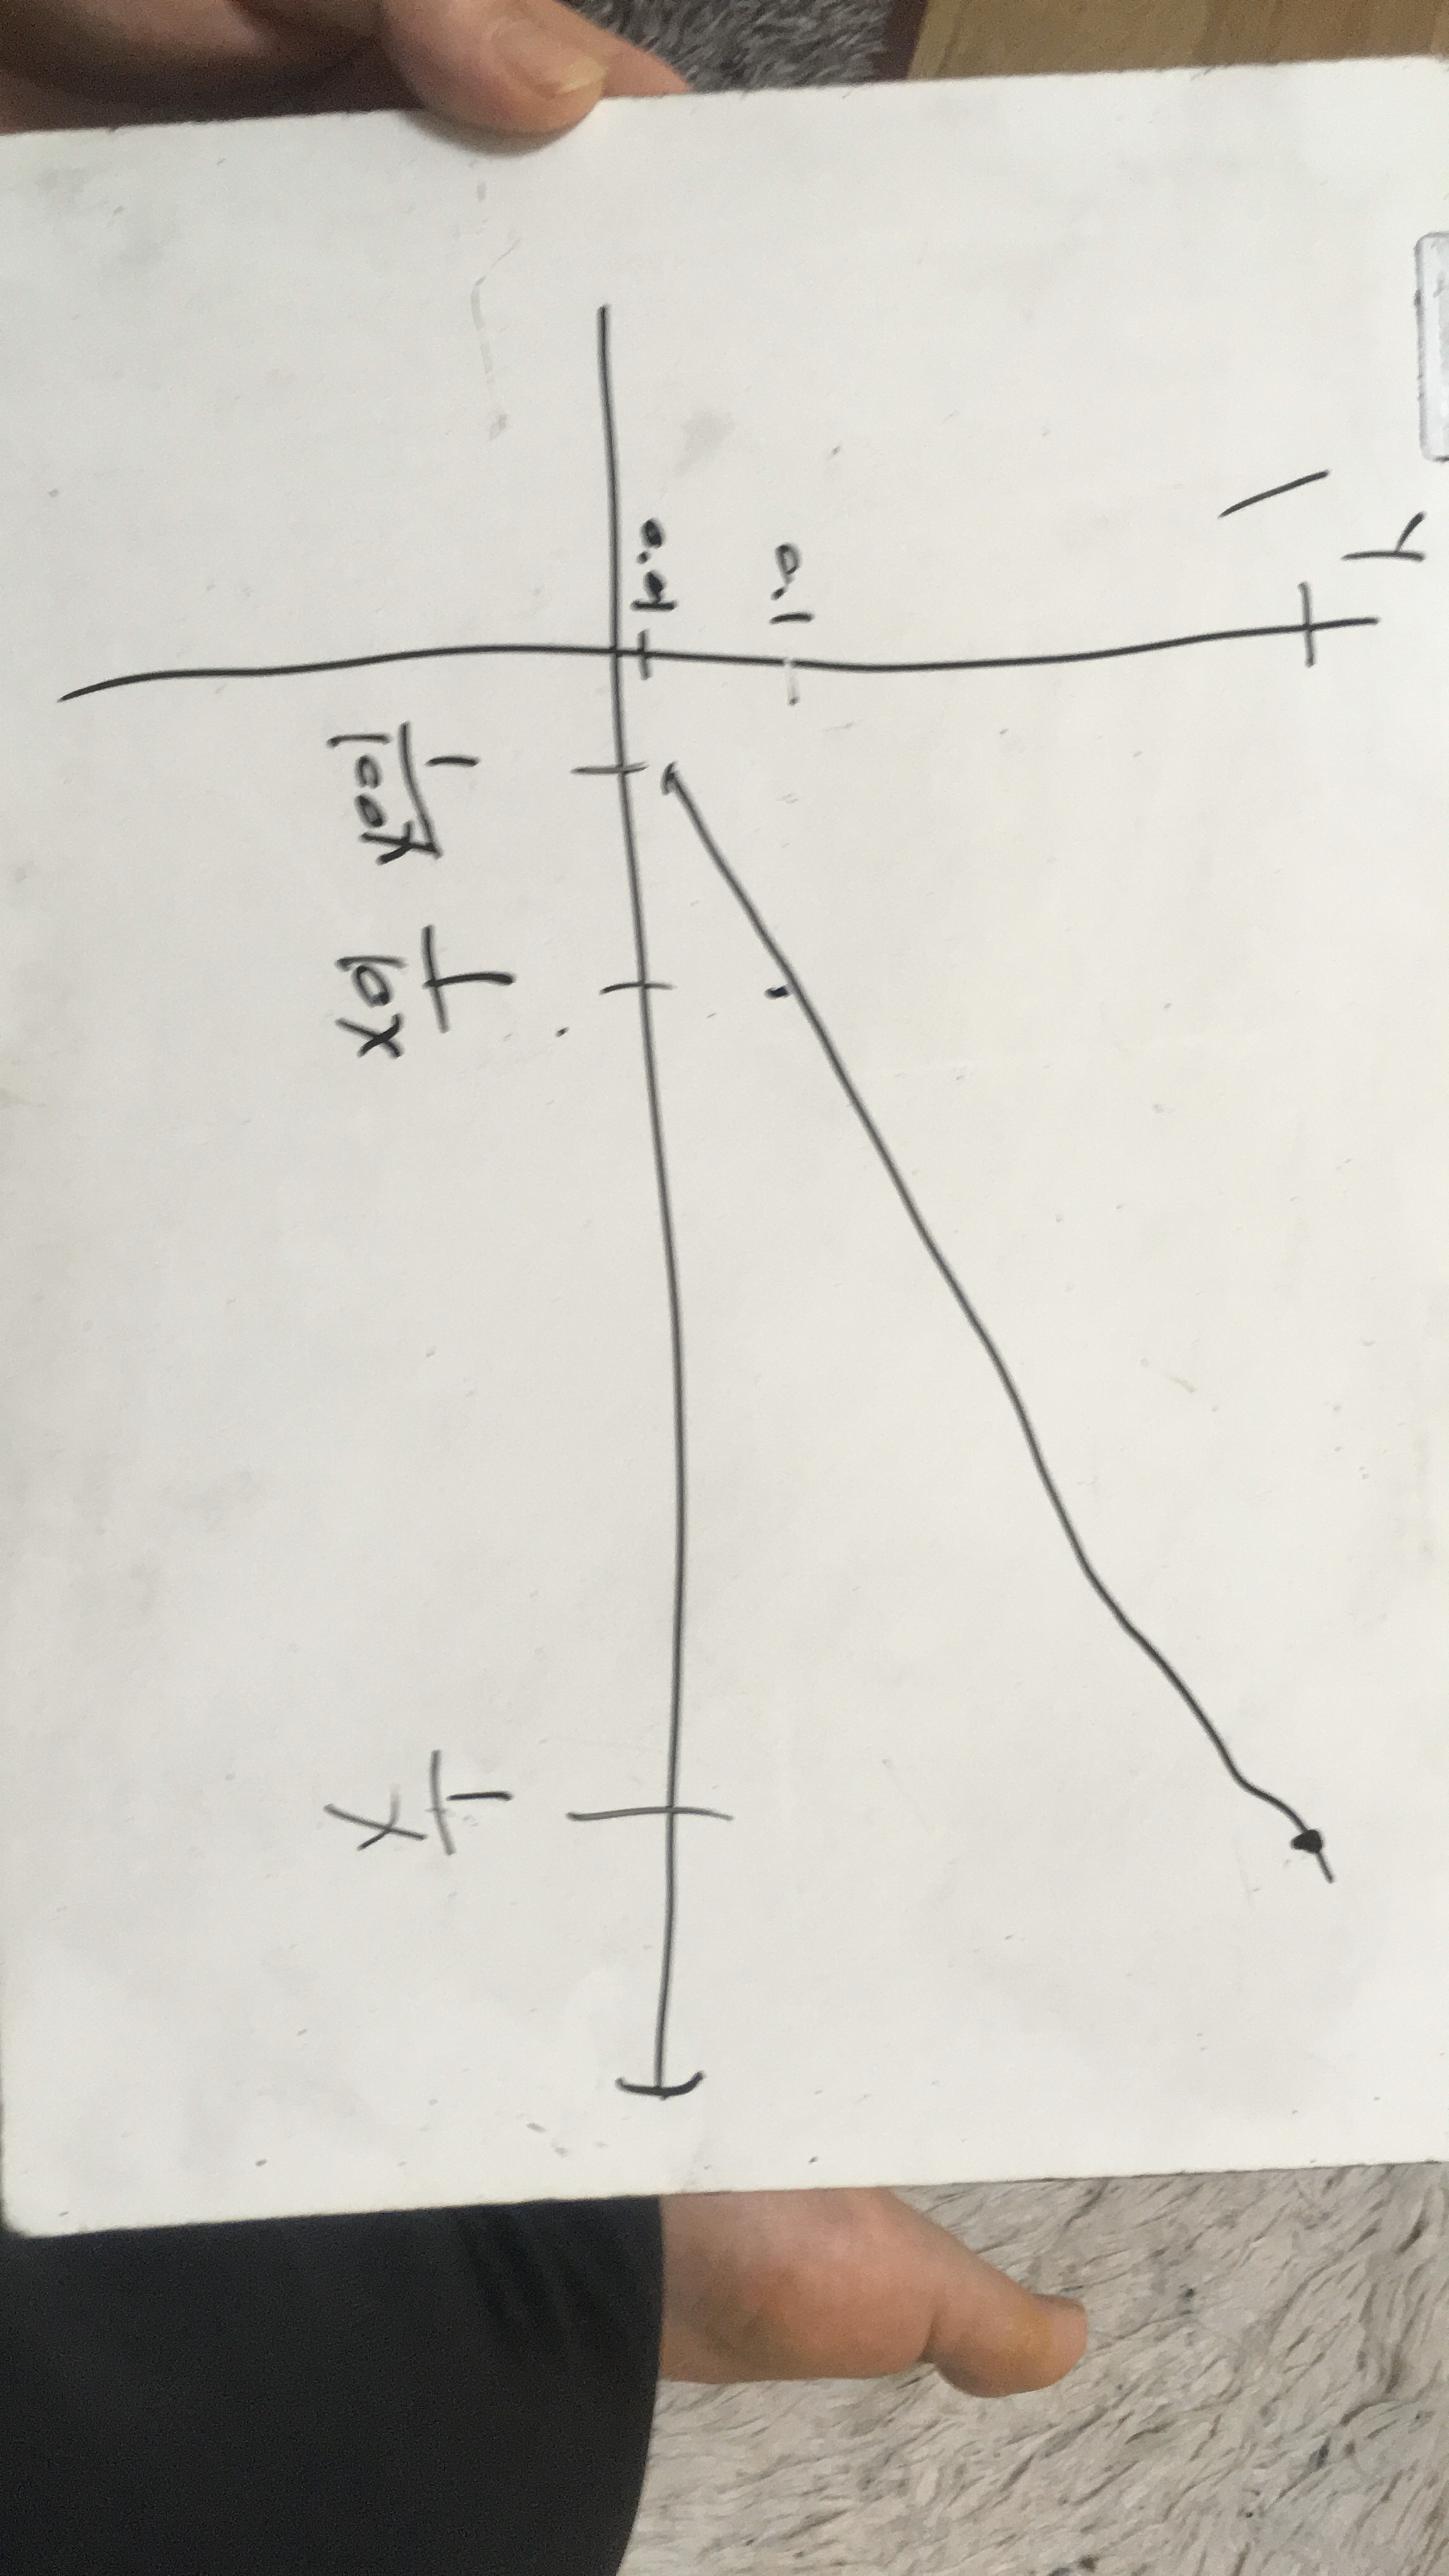 y
1
0.1
1/100x 1/10x 1/x